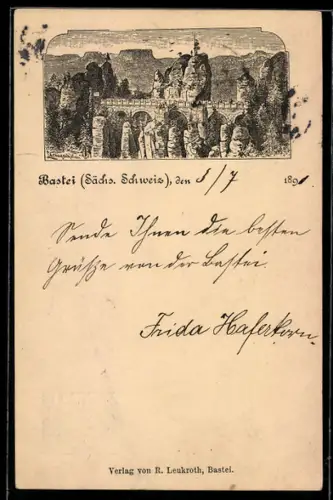 Bastei (Sächs. Schweiz), den 5/7 1891
Sende Ihnen die besten
Grüße von der Bastei
Frida Haferkorn.
Verlag von R. Leukroth, Bastei.